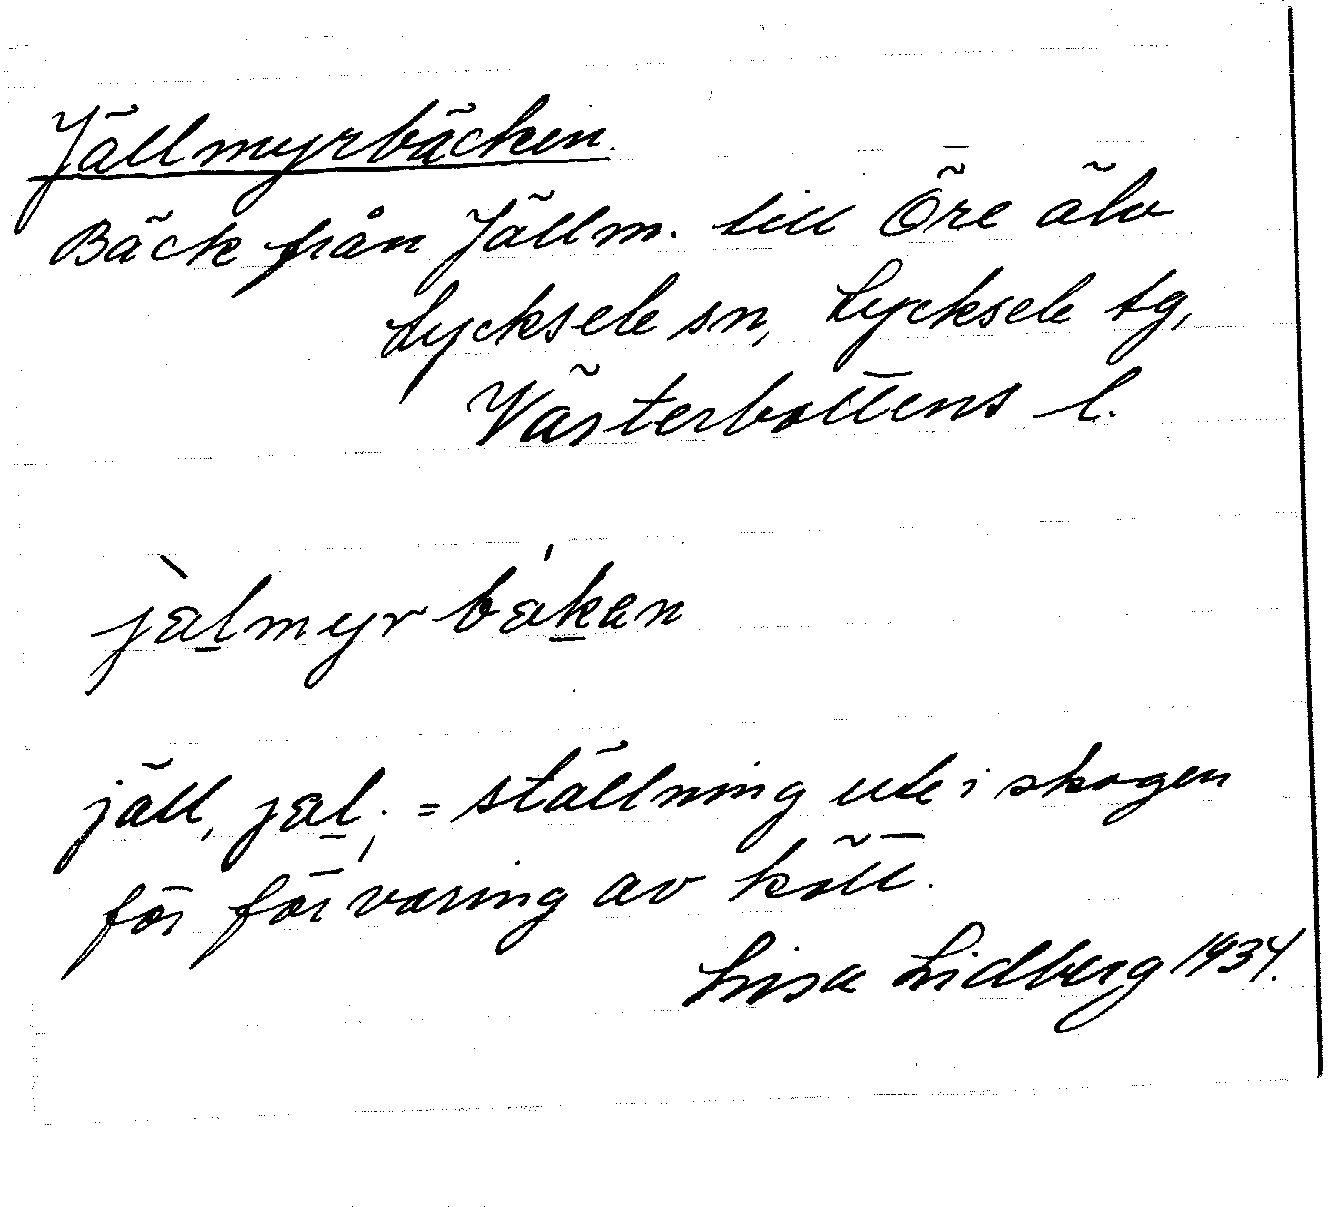 Jällmyrbäcken.
Bäck från Jällm. till Öre älv
Lycksele sn, Lycksele tg,
Västerbottens l.
jὰlmyrbákan
jäll, jal; = ställning ute i skogen
för förvaring av kött.
Lisa Lidberg 1934.